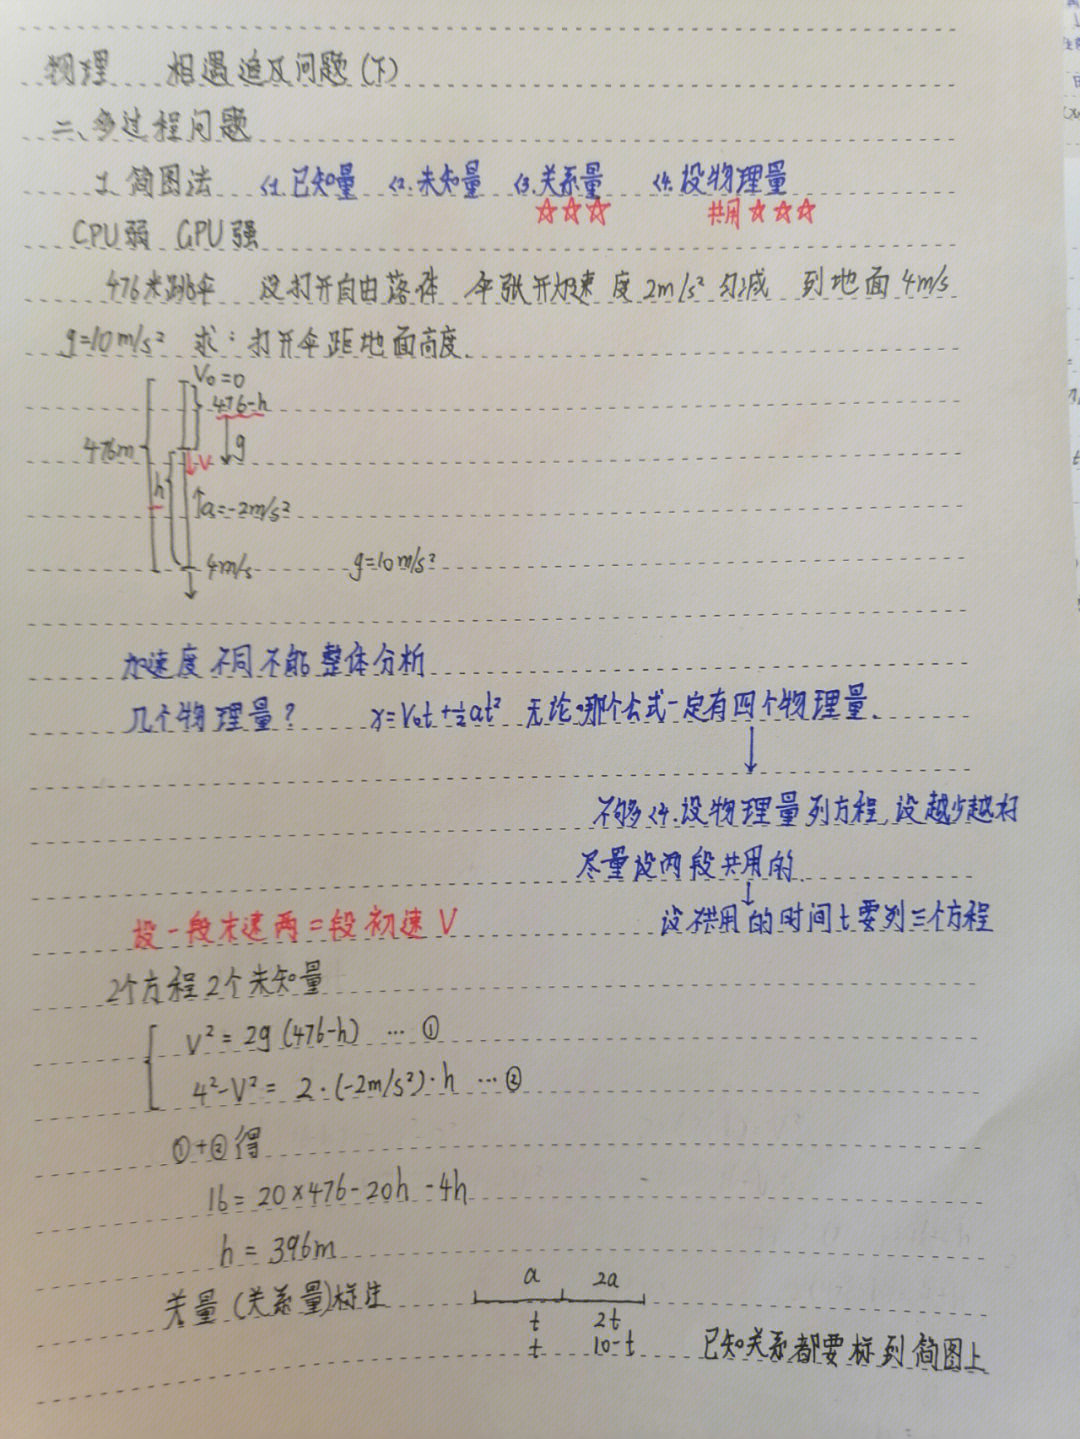 物理 相遇追及问题(下)
二、多过程问题
1.简图法 <1.已知量 <2.未知量 <3.关系量 <4.设物理量
☆☆☆ 共用☆☆☆
CPU弱 GPU强
476米跳伞 没打开自由落体 伞张开加速度2m/s² 匀减 到地面4m/s
g=10m/s² 求:打开伞距地面高度.
V₀=0
476-h
476m g
V
h
↑a=-2m/s²
4m/s g=10m/s²
加速度不同不能整体分析
几个物理量? x=V₀t+½at² 无论哪个公式一定有四个物理量.
不够<4.设物理量列方程,设越少越好
尽量设两段共用的.
设一段末速两=段初速V 设不共用的时间t要列三个方程
2个方程2个未知量
V²=2g(476-h) …①
4²-V²=2·(-2m/s²)·h …②
①+②得
16=20×476-20h-4h
h=396m
关量(关系量)标注 a 2a
t 2t
t 10-t 已知关系都要标到简图上